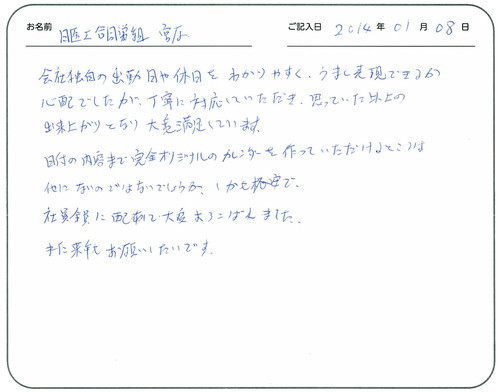 お名前 日医工合同労組 宮下 ご記入日 2014年01月08日
会社独自の出勤日や休日を わかりやすく、うまく表現できるか
心配でしたが、丁寧に対応していただき、思っていた以上の
出来上がりとなり 大変満足しています。
日付の内容まで完全オリジナルのカレンダーを作っていただけるところは
他にないのではないでしょうか、しかも格安で。
社員全員に配布で大変よろこばれました。
また来年も お願いしたいです。